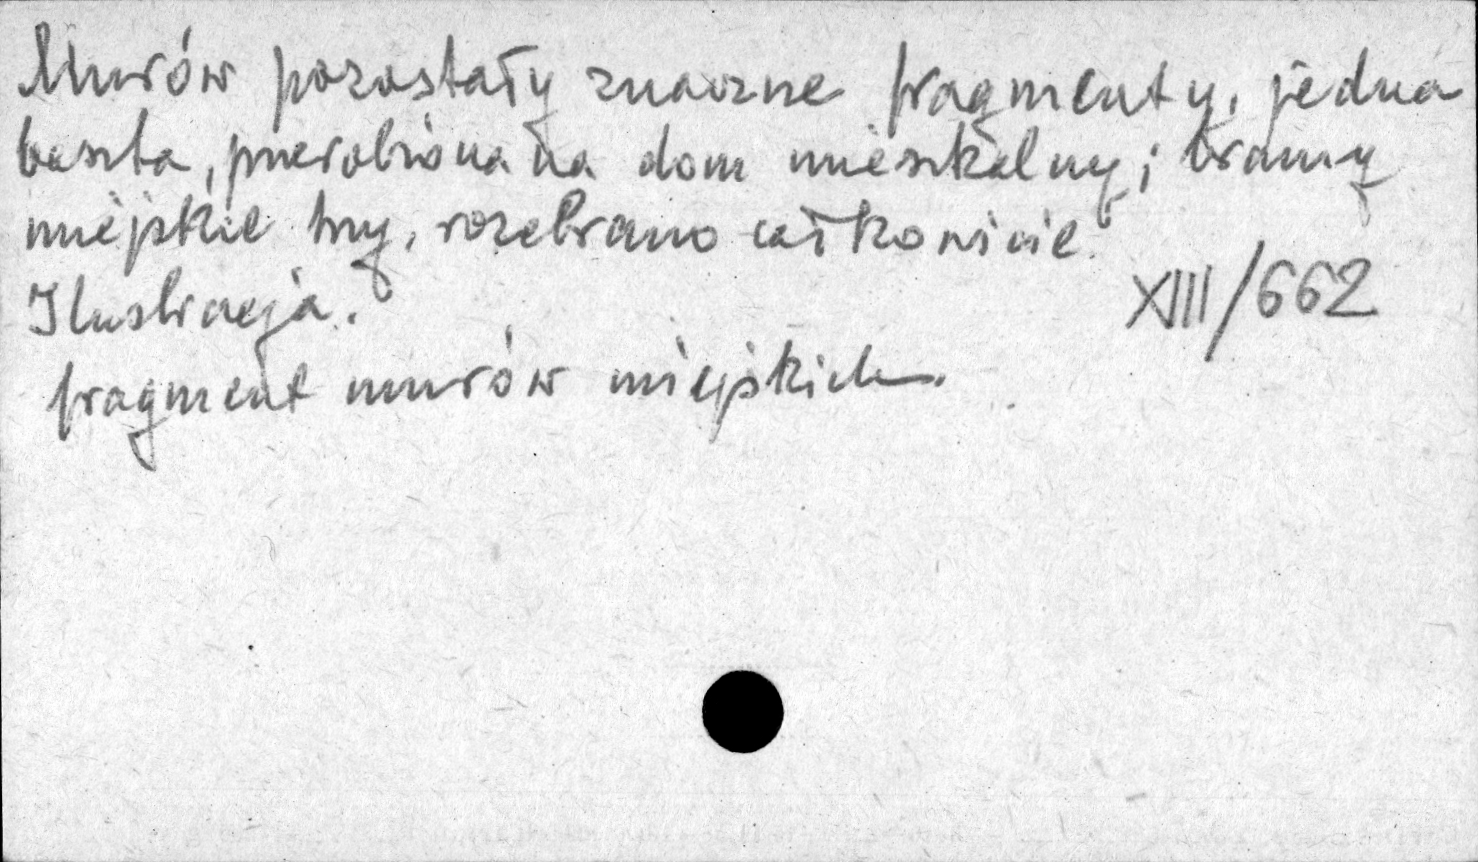 Murów pozostały znaczne fragmenty, jedna
baszta, przerobiona na dom mieszkalny; bramy
miejskie trzy, rozebrano całkowicie.
Ilustracja.
XIII/662
fragment murów miejskich.